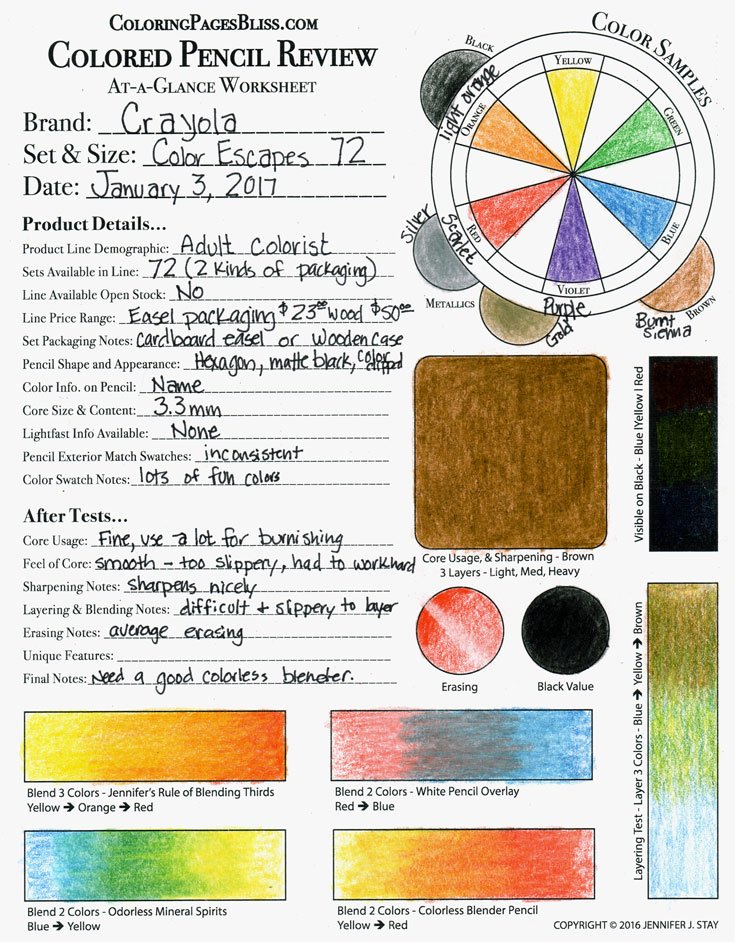 ColoringPagesBliss.com
Colored Pencil Review
At-a-Glance Worksheet
Brand: Crayola
Set & Size: Color Escapes 72
Date: January 3, 2017
Product Details...
Product Line Demographic: Adult Colorist
Sets Available in Line: 72 (2 kinds of packaging)
Line Available Open Stock: No
Line Price Range: Easel packaging $23.00 wood $50.00
Set Packaging Notes: Cardboard easel or Wooden case
Pencil Shape and Appearance: Hexagon, matte black, color dipped
Color Info. on Pencil: Name
Core Size & Content: 3.3mm
Lightfast Info Available: None
Pencil Exterior Match Swatches: inconsistent
Color Swatch Notes: lots of fun colors
After Tests...
Core Usage: Fine, use a lot for burnishing
Feel of Core: smooth - too slippery, had to work hard
Sharpening Notes: sharpens nicely
Layering & Blending Notes: difficult + slippery to layer
Erasing Notes: average erasing
Unique Features:
Final Notes: Need a good colorless blender.
Color Samples
Black
light orange
Orange
Yellow
Green
Blue
Brown
Burnt sienna
Violet
Purple
Gold
Metallics
Silver
Scarlet
Red
Core Usage, & Sharpening - Brown
3 Layers - Light, Med, Heavy
Visible on Black - Blue |Yellow | Red
Erasing
Black Value
Layering Test - Layer 3 Colors - Blue → Yellow → Brown
Blend 3 Colors - Jennifer's Rule of Blending Thirds
Yellow → Orange → Red
Blend 2 Colors - White Pencil Overlay
Red → Blue
Blend 2 Colors - Odorless Mineral Spirits
Blue → Yellow
Blend 2 Colors - Colorless Blender Pencil
Yellow → Red
COPYRIGHT © 2016 JENNIFER J. STAY